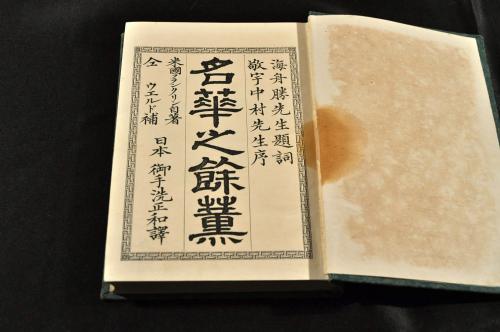 海舟勝先生題詞
敬宇中村先生序
名華之餘薫
米國フランクリン自著
仝 ウエルド補
日本 御手洗正和譯